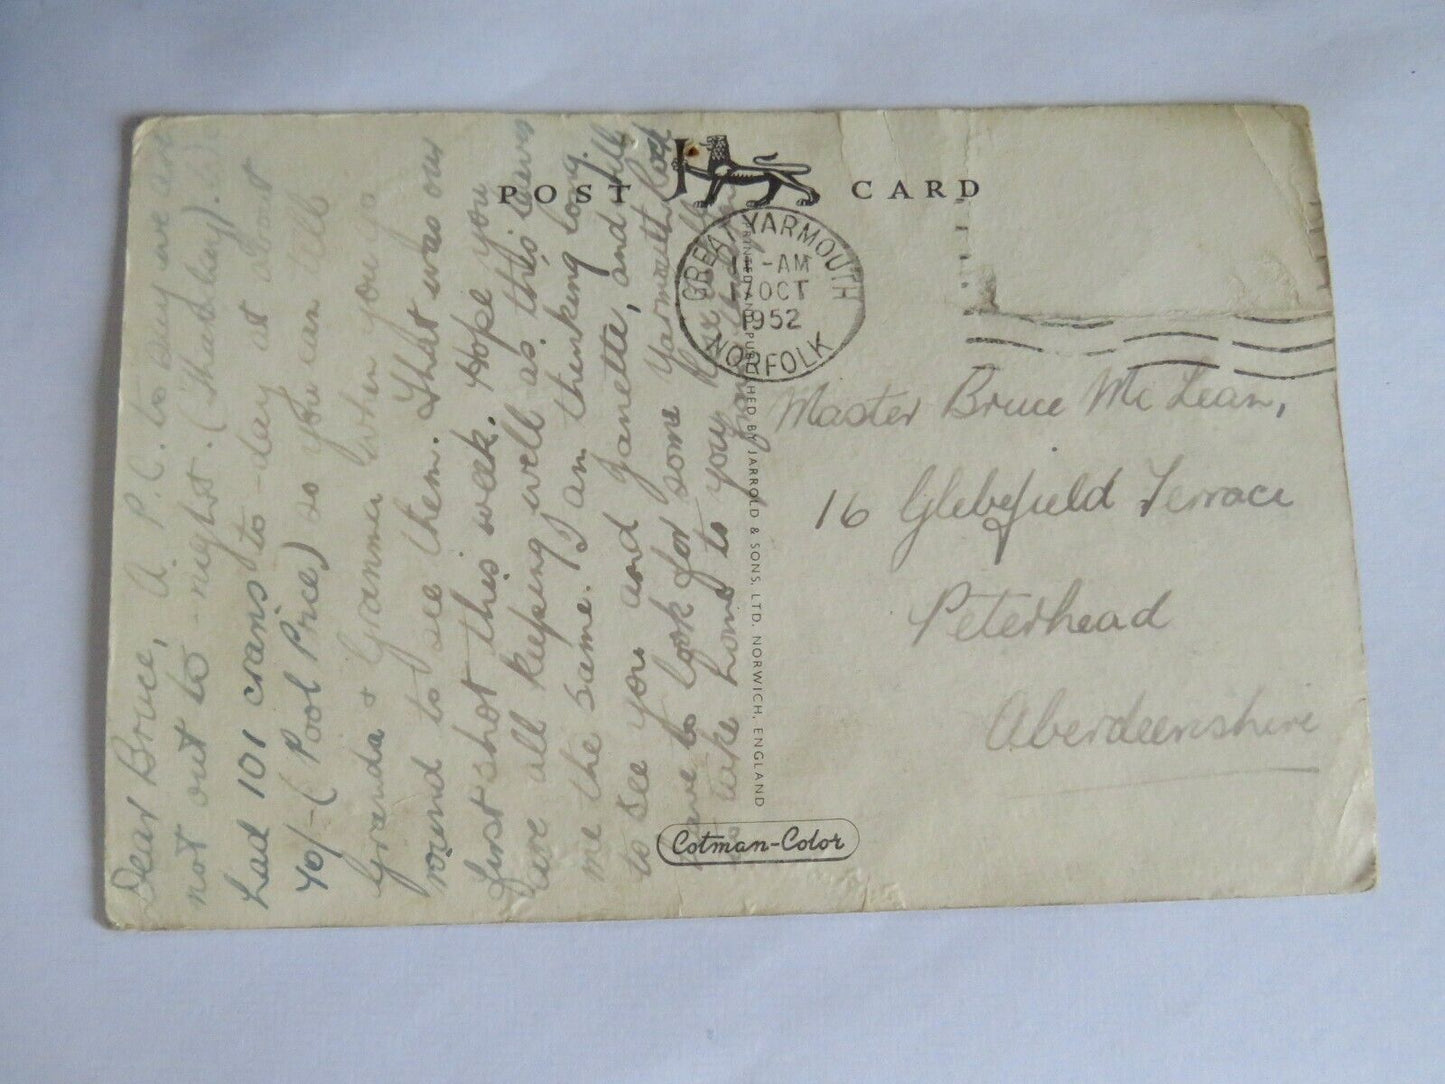 POST CARD
GREAT YARMOUTH
11-AM
17 OCT
1952
NORFOLK
Dear Bruce, A P.C. to say we are
not out to-night. (Thursday). We
had 101 crans to-day at about
40/- (Pool Price) so you can tell
Granda & Granma when you go
round to see them. That was our
first shot this week. Hope you
are all keeping well as this leaves
me the same. I am thinking long
to see you and Janette, and will
have to look for some Yarmouth Rock
to take home to you
Master Bruce McLean,
16 Glebefield Terrace
Peterhead
Aberdeenshire
PRINTED AND PUBLISHED BY JARROLD & SONS, LTD. NORWICH, ENGLAND
Cotman-Color